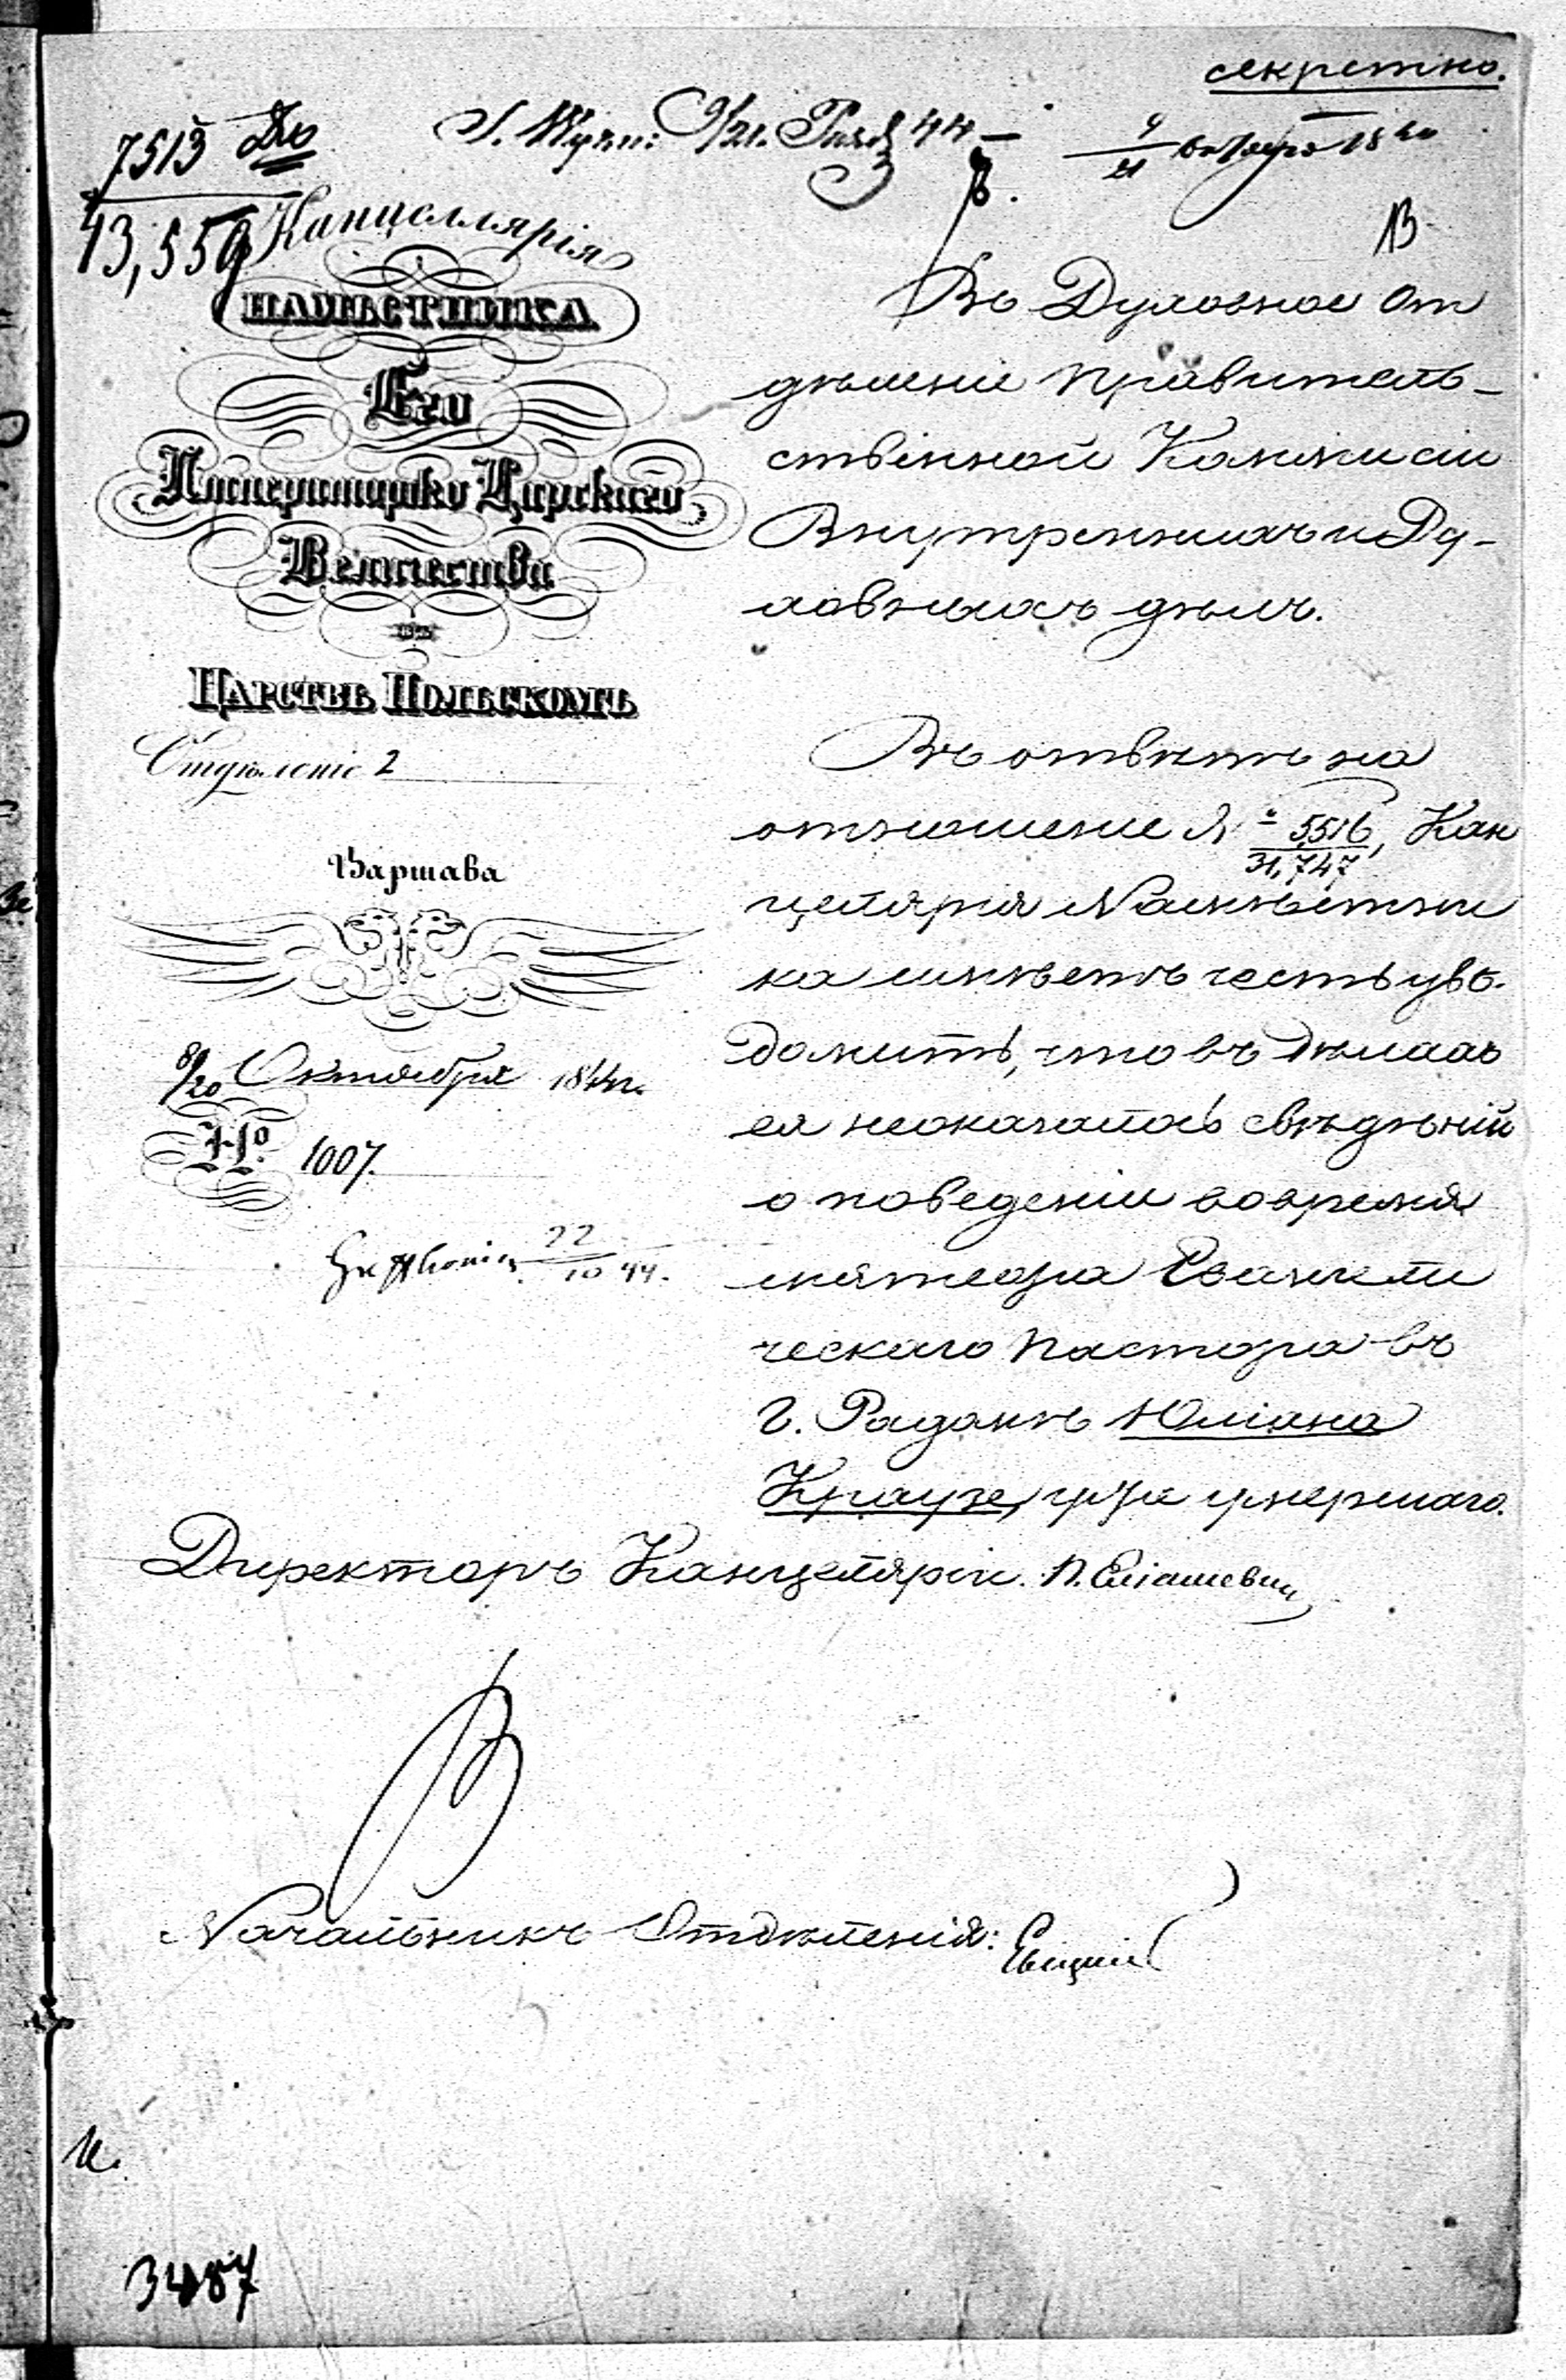 секретно.
7513
13,559
44
18
В
Канцеллярія
НАМѢСТНИКА
Его
Императорско Царскаго
Величества
въ
ЦАРСТВѢ ПОЛЬСКОМЪ
Отдѣленіе 2
Варшава
8/20 Октября 1844 г.
№ 1007.
22
10 44.
Въ Духовное От
дѣленіе Правитель-
ственной Коммисіи
Внутреннихъ и Ду-
ховныхъ дѣлъ.
Въ отвѣтъ на
отношеніе № 5516/31,747, Кан
целярія Намѣстни
ка имѣетъ честь увѣ-
домить, что въ дѣлахъ
ея неоказалось свѣдѣній
о поведеніи вовремя
мятежа Евангели
ческаго Пастора въ
г. Радомѣ Юліана
Краузе, уже умершаго.
Директоръ Канцеляріи. П.
Начальникъ Отдѣленія:
3487